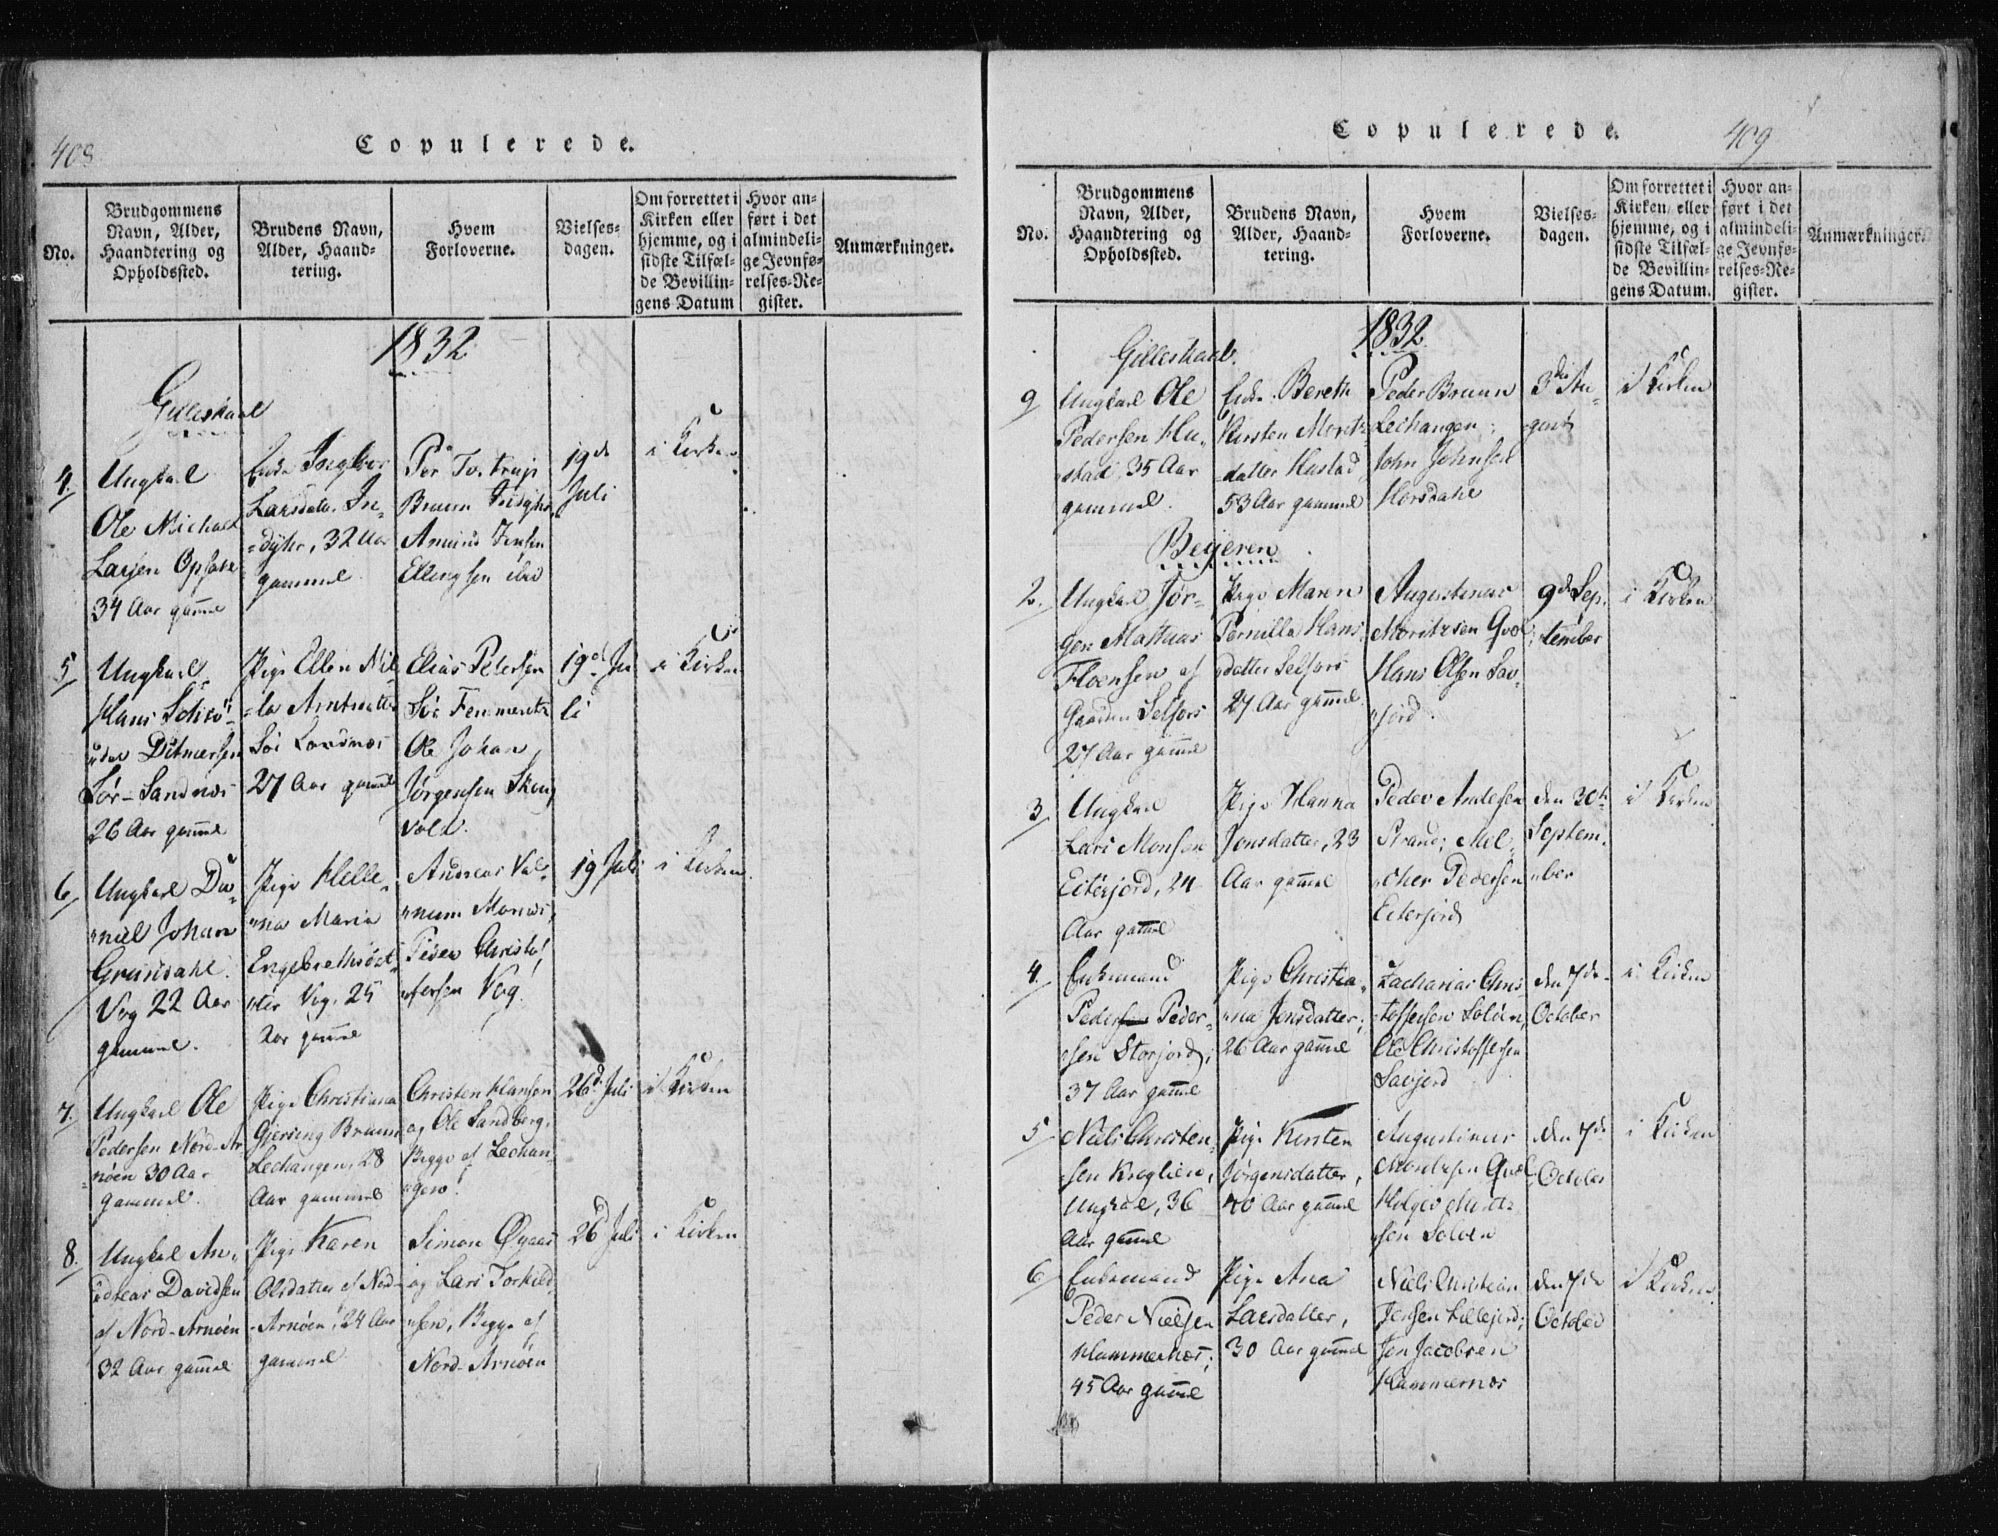 408
Copulerede.
No.
Brudgommens
Navn, Alder,
Haandtering og
Opholdssted.
Brudens Navn,
Alder, Haand-
tering.
Hvem
Forloverne.
Vielses-
dagen.
Om forrettet i
Kirken eller
hjemme, og i
sidste Tilfæl-
de Bevillin-
gens Datum
Hvor an-
ført i det
almindeli-
ge Jevnfø-
relses-Re-
gister.
Anmærkninger.
1832
Gilleskaal
4.
Ungkarl
Ole Michael
Larsen
34 Aar gam̅el
Enke Ingebor
Larsdatr. In-
=dyhr, 32 Aar
gammel
Per
Bruun Indyhr,
Amund Jensen
Ellingsen ibid
19de
Juli
i Kirken
5
Ungkarl
Hans
Ditmersen
Sør-Sandnæs
26 Aar gam̅el
Pige Ellen Nil-
Arntsdatter
Sandnæs
27 Aar gam̅el
Elias Petersen
Sør
Ole Johan
Jørgensen
vold.
19d Ju
li
i Kirken
6
Ungkarl Da-
"niel Johan
Grundahl
Vog 22 Aar
gammel.
Pige Helle-
"na Maria
Engebrethsdat-
"ter Vog, 25
Aar gam̅el
Andreas Val-
"num
Peder Christo-
"fersen Vog.
19 Juli
i Kirken
7.
Ungkarl Ole
Pedersen Nord-Ar
nöen 30 Aar
gammel.
Pige Christiana
Gjersing Bruun
Lechangen, 28
Aar gammel
Christen Hansen
og Ole Sandberg,
Begge af Lechan-
"gen.
26d Juli
i Kirken
8.
Ungkarl An-
"dreas Davidsen
af Nord-Arnöen
32 Aar gam̅el
Pige Karen
Olsdatter af Nord-
Arnöen, 24 Aar
gammel
Simon Øgaas
og Lars Torkild
"sen, Begge af
Nord-Arnöen
26d Juli
i Kirken
409
Copulerede.
No.
Brudgommens
Navn, Alder,
Haandtering og
Opholdssted.
Brudens Navn,
Alder, Haand-
tering.
Hvem
Forloverne.
Vielses-
dagen.
Om forrettet i
Kirken eller
hjemme, og i
sidste Tilfæl-
de Bevillin-
gens Datum.
Hvor an-
ført i det
almindeli-
ge Jevnfø-
relses-Re-
gister.
Anmærkninger.
1832
Gilleskaal.
9
Ungkarl Ole
Pedersen Hu-
stad, 35 Aar
gammel.
Enke Bereth
Kirsten Morits
datter Hustad
53 Aar gammel
Peder Bruun
Lechangen;
John Johnsen
Horsdahl
3die Au-
gust
i Kirken
Bejeren
2.
Ungkarl Jør-
gen Mathias
Floensen af
Gaarden Selfors
27 Aar gam̅el
Pige Maren
Pernilla Hans
"datter Selfors
27 Aar gam̅el
Augustinus
Moritzsen Qval,
Hans Olsen Sav-
"jord.
9de Sep.
"tember
i Kirken
3
Ungkarl
Lars Monsen
Eiterjord, 24
Aar gam̅el
Pige Hanna
Jonsdatter, 23
Aar gam̅el
Peder Andersen
Strand; Mel-
"cher Pedersen
Eiterjord
den 30te
Septem-
"ber
i Kirken
4.
Enkemand
Peder Peder-
"sen Storjord;
37 Aar gam̅el
Pige Christia-
"na Jensdatter;
26 Aar gam̅el
Zacharias Chris
"toffersen Solöen,
Ole Christoffersen
Savjord
den 7de
October
i Kirken
5
Niels Christen-
"sen
Ungkarl, 36
Aar gam̅el
Pige Kirsten
Jørgensdatter,
40 Aar gam̅el
Augustinus
Moritzsen Qval
Holger
"sen Solöen
den 7de
October
i Kirken
6
Enkemand
Peder Nielsen
Hammernæs;
45 Aar gam̅el
Pige Ana
Larsdatter,
30 Aar gam̅el
Niels Christian
Jensen Lillejord;
Jon Jacobsen
Hammernæs
den 7de
October
i Kirken